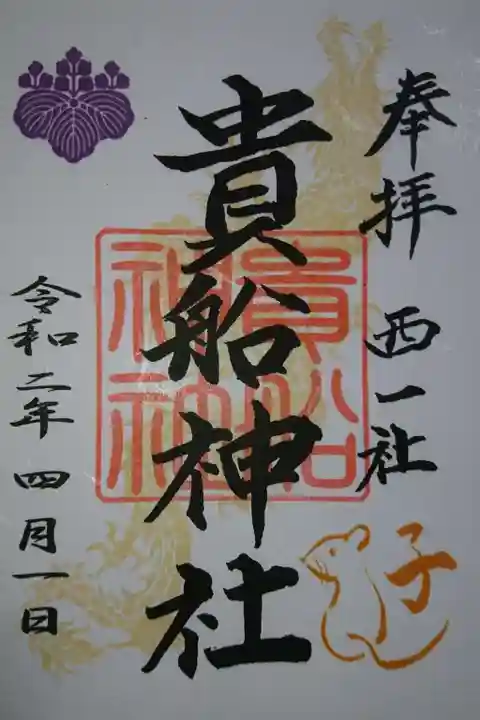 奉拝 西一社
貴船神社
貴船神社
令和二年 四月一日
子